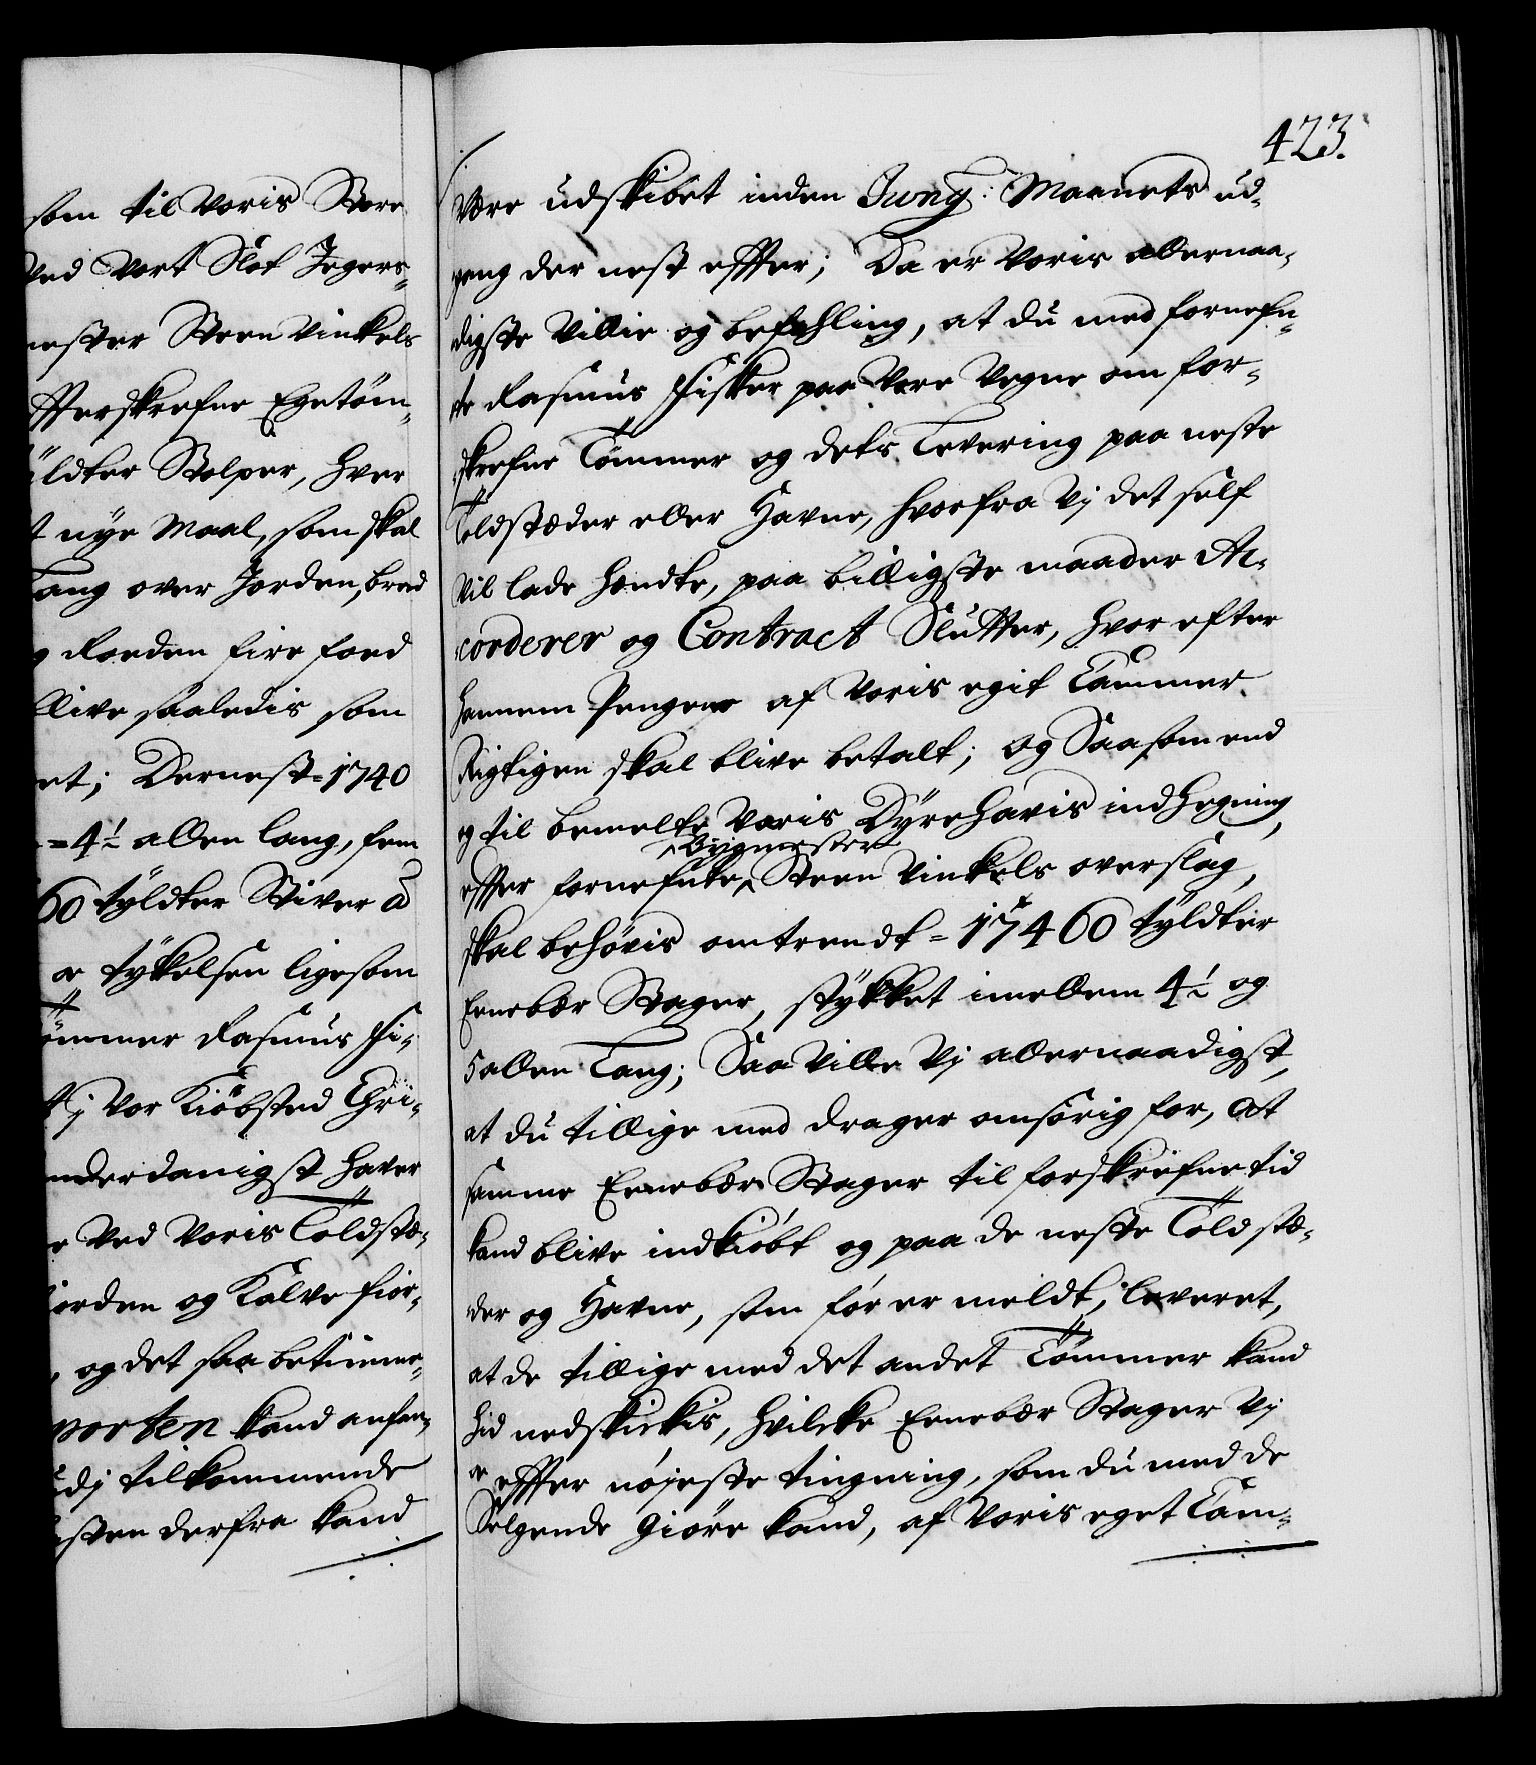 som til Voris Store
Ved Vort Slot Jegers-
mester Steen Vinkels
efterskrefne Egetöm-
tyldter Stolper, hver
nye Maal, som skal
lang over Jorden, bred
Roeden fire foed
blive saaledis som
et; Dernest = 1740
= 4½ allen lang, fem
60 tyldter Stiver à
tykkelsen ligesom
ömmer Rasmus Fi-
j Vor Kiöbsted Chri-
underdanigst haver
Ved Voris Toldstæ-
fiorden og Kalve fior-
, og det saa betimme-
porten kand anfan-
tilkommende
derfra kand
423.
Være udskibet inden Junij: Maanets ud-
gang der nest effter; Da er Voris allernaa-
digste Villie og befahling, at du med fornefn-
te Rasmus Fisker paa Vore Vegne om for-
skrefne Tömmer og dets Levering paa neste
Toldstæder eller Havne, hvorfra Vj det self
Vil lade hendte, paa billigste maader Ac-
corderer og Contract Slutter, hvor efter
hannem Pengene af Voris egit Cammer
Rigtigen skal blive betalt; og Saasom end
og til bemelte Voris Dyrehavis indhegning,
Bygmester
effter fornefnte Steen Vinkels overslag,
skal behövis omtrendt = 17460 tyldter
Eenebær Stager, stykket imellem 4½ og
5 allen Lang; Saa Ville Vj allernaadigst,
at du tillige med drager omsorig for, at
samme Eenebær Stager til forskrefne tid
kand blive indkiöbt og paa de neste Toldstæ-
der og Havne, som för er meldt, leveret,
at de tillige med det andet Tömmer kand
hid nedskickis, hvilcke Eenebær Stager Vj
effter nöjeste tingning, som du med de
Selgende Giöre kand, af Voris eget Cam-